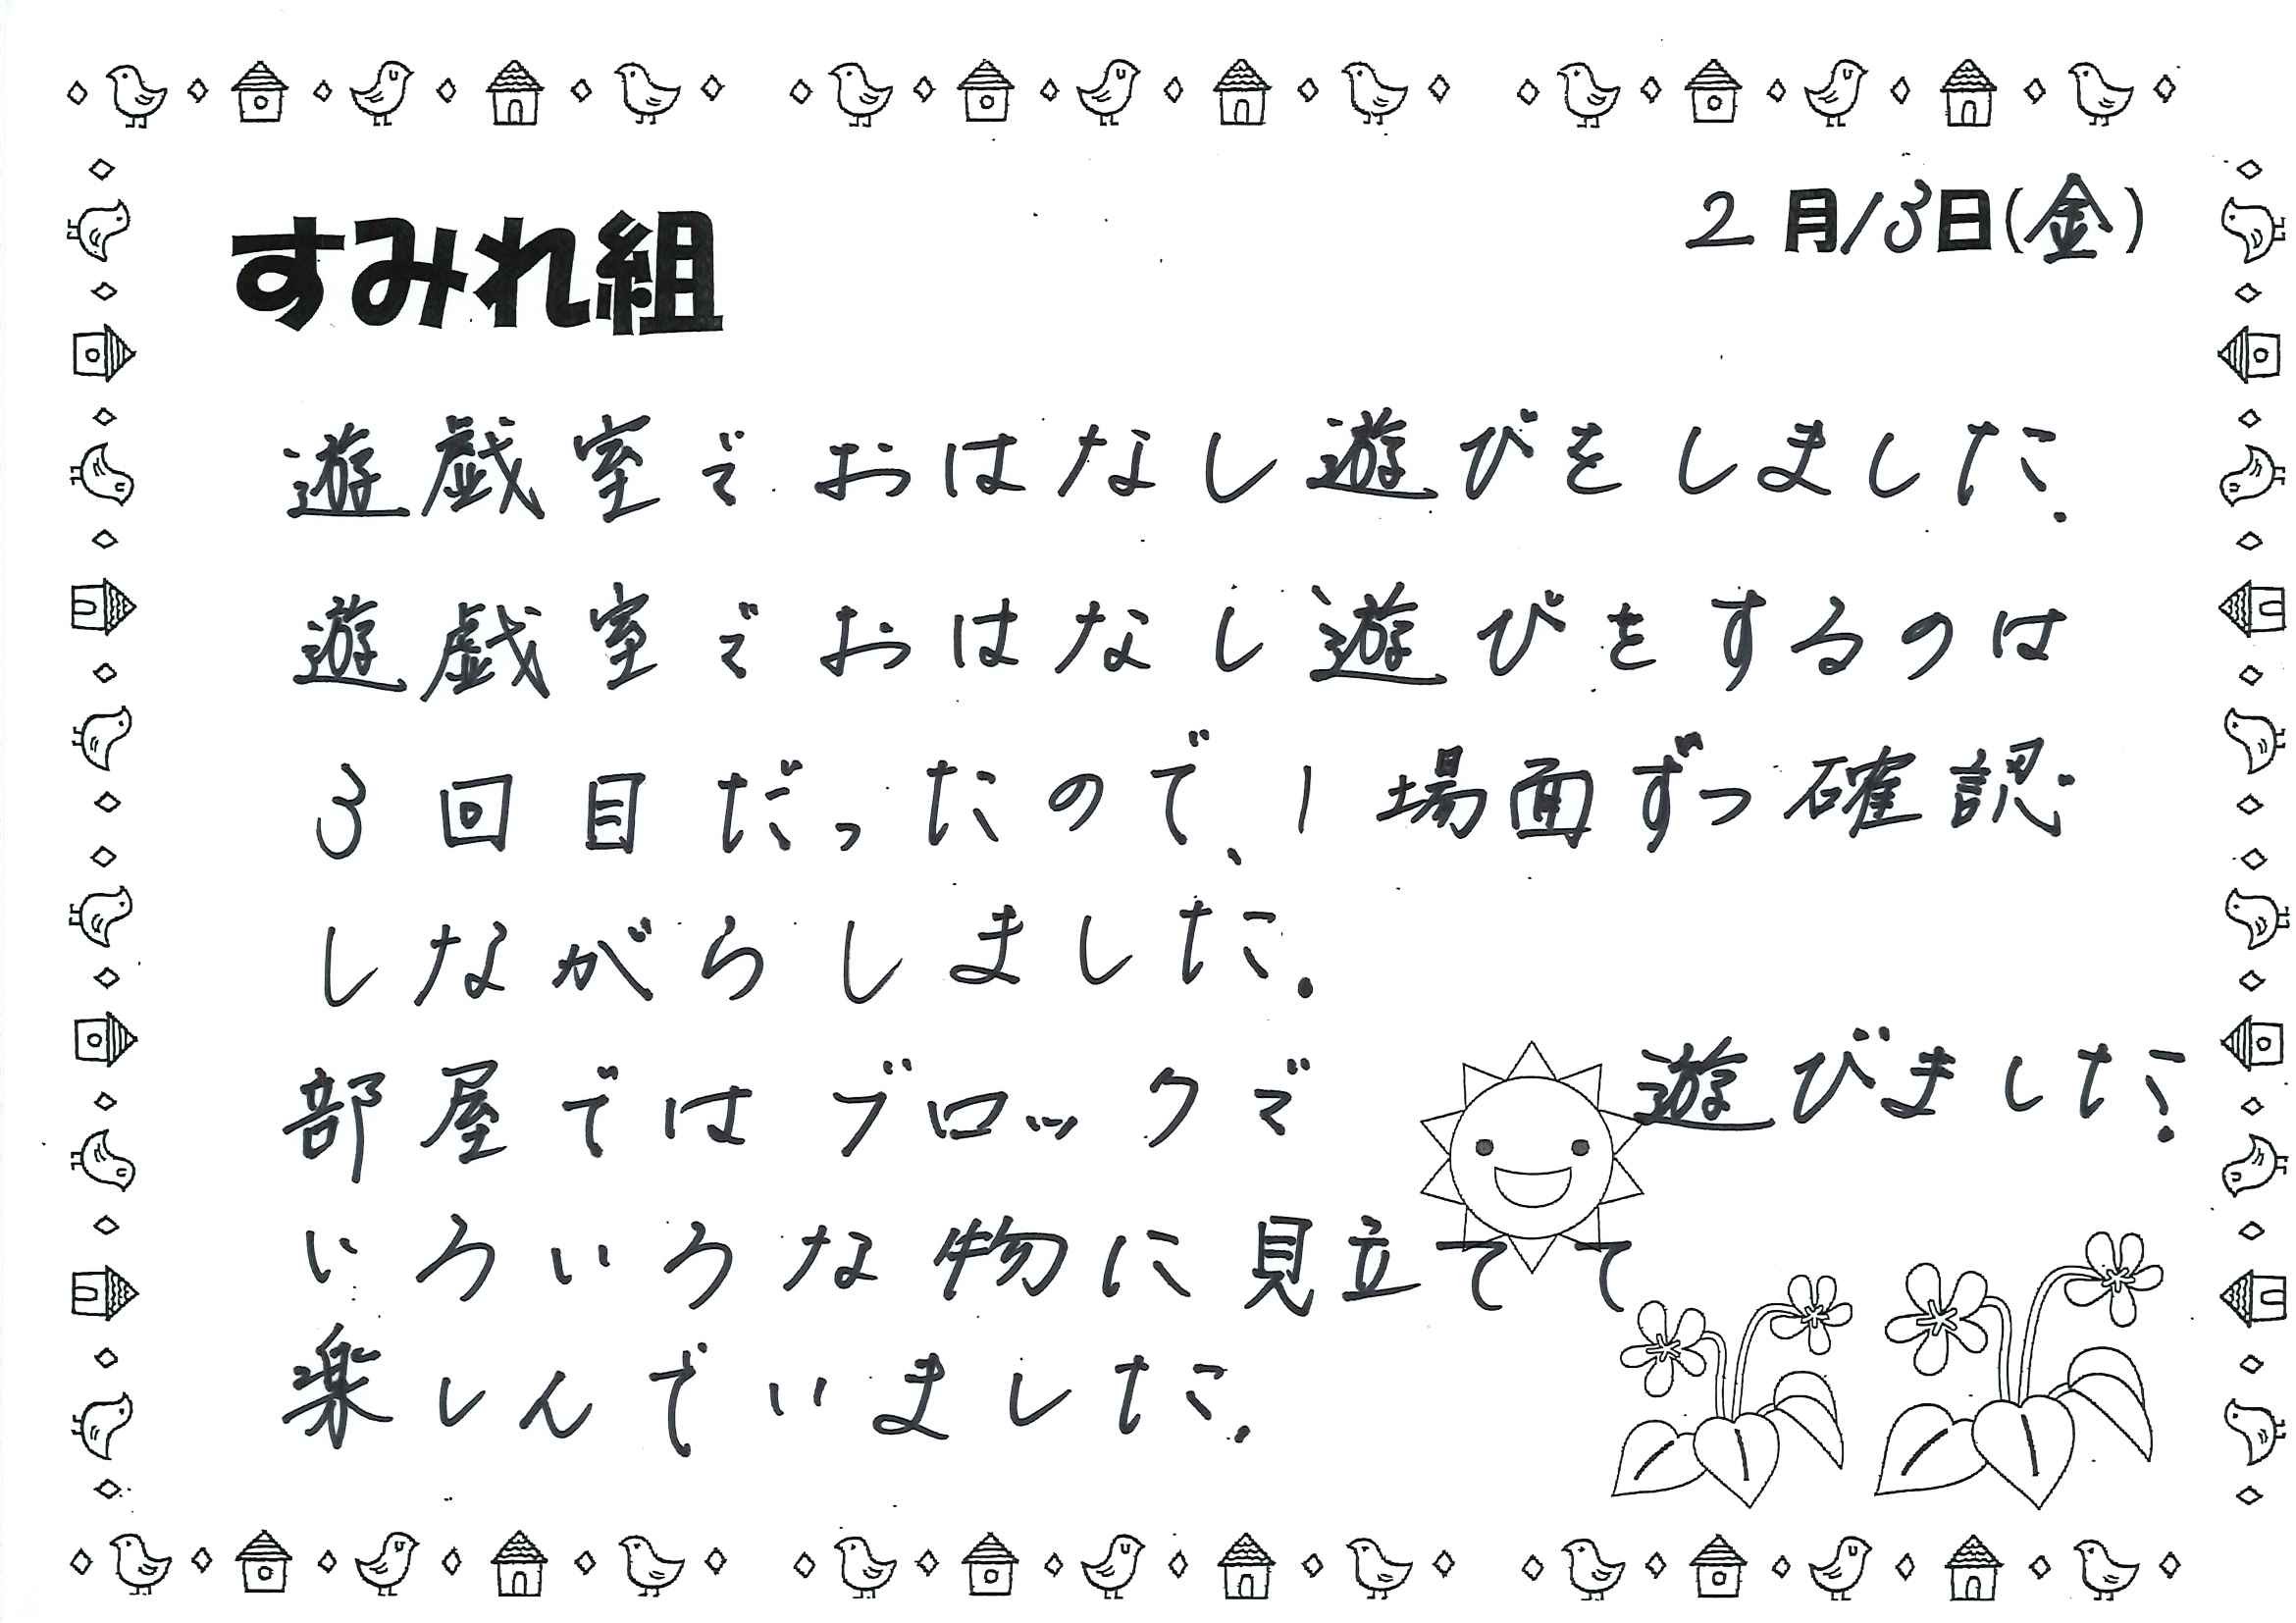 すみれ組
2月13日(金)
遊戯室でおはなし遊びをしました.
遊戯室でおはなし遊びをするのは
3回目だったので、1場面ずつ確認
しながらしました.
部屋ではブロックで 遊びました.
いろいろな物に見立てて
楽しんでいました.